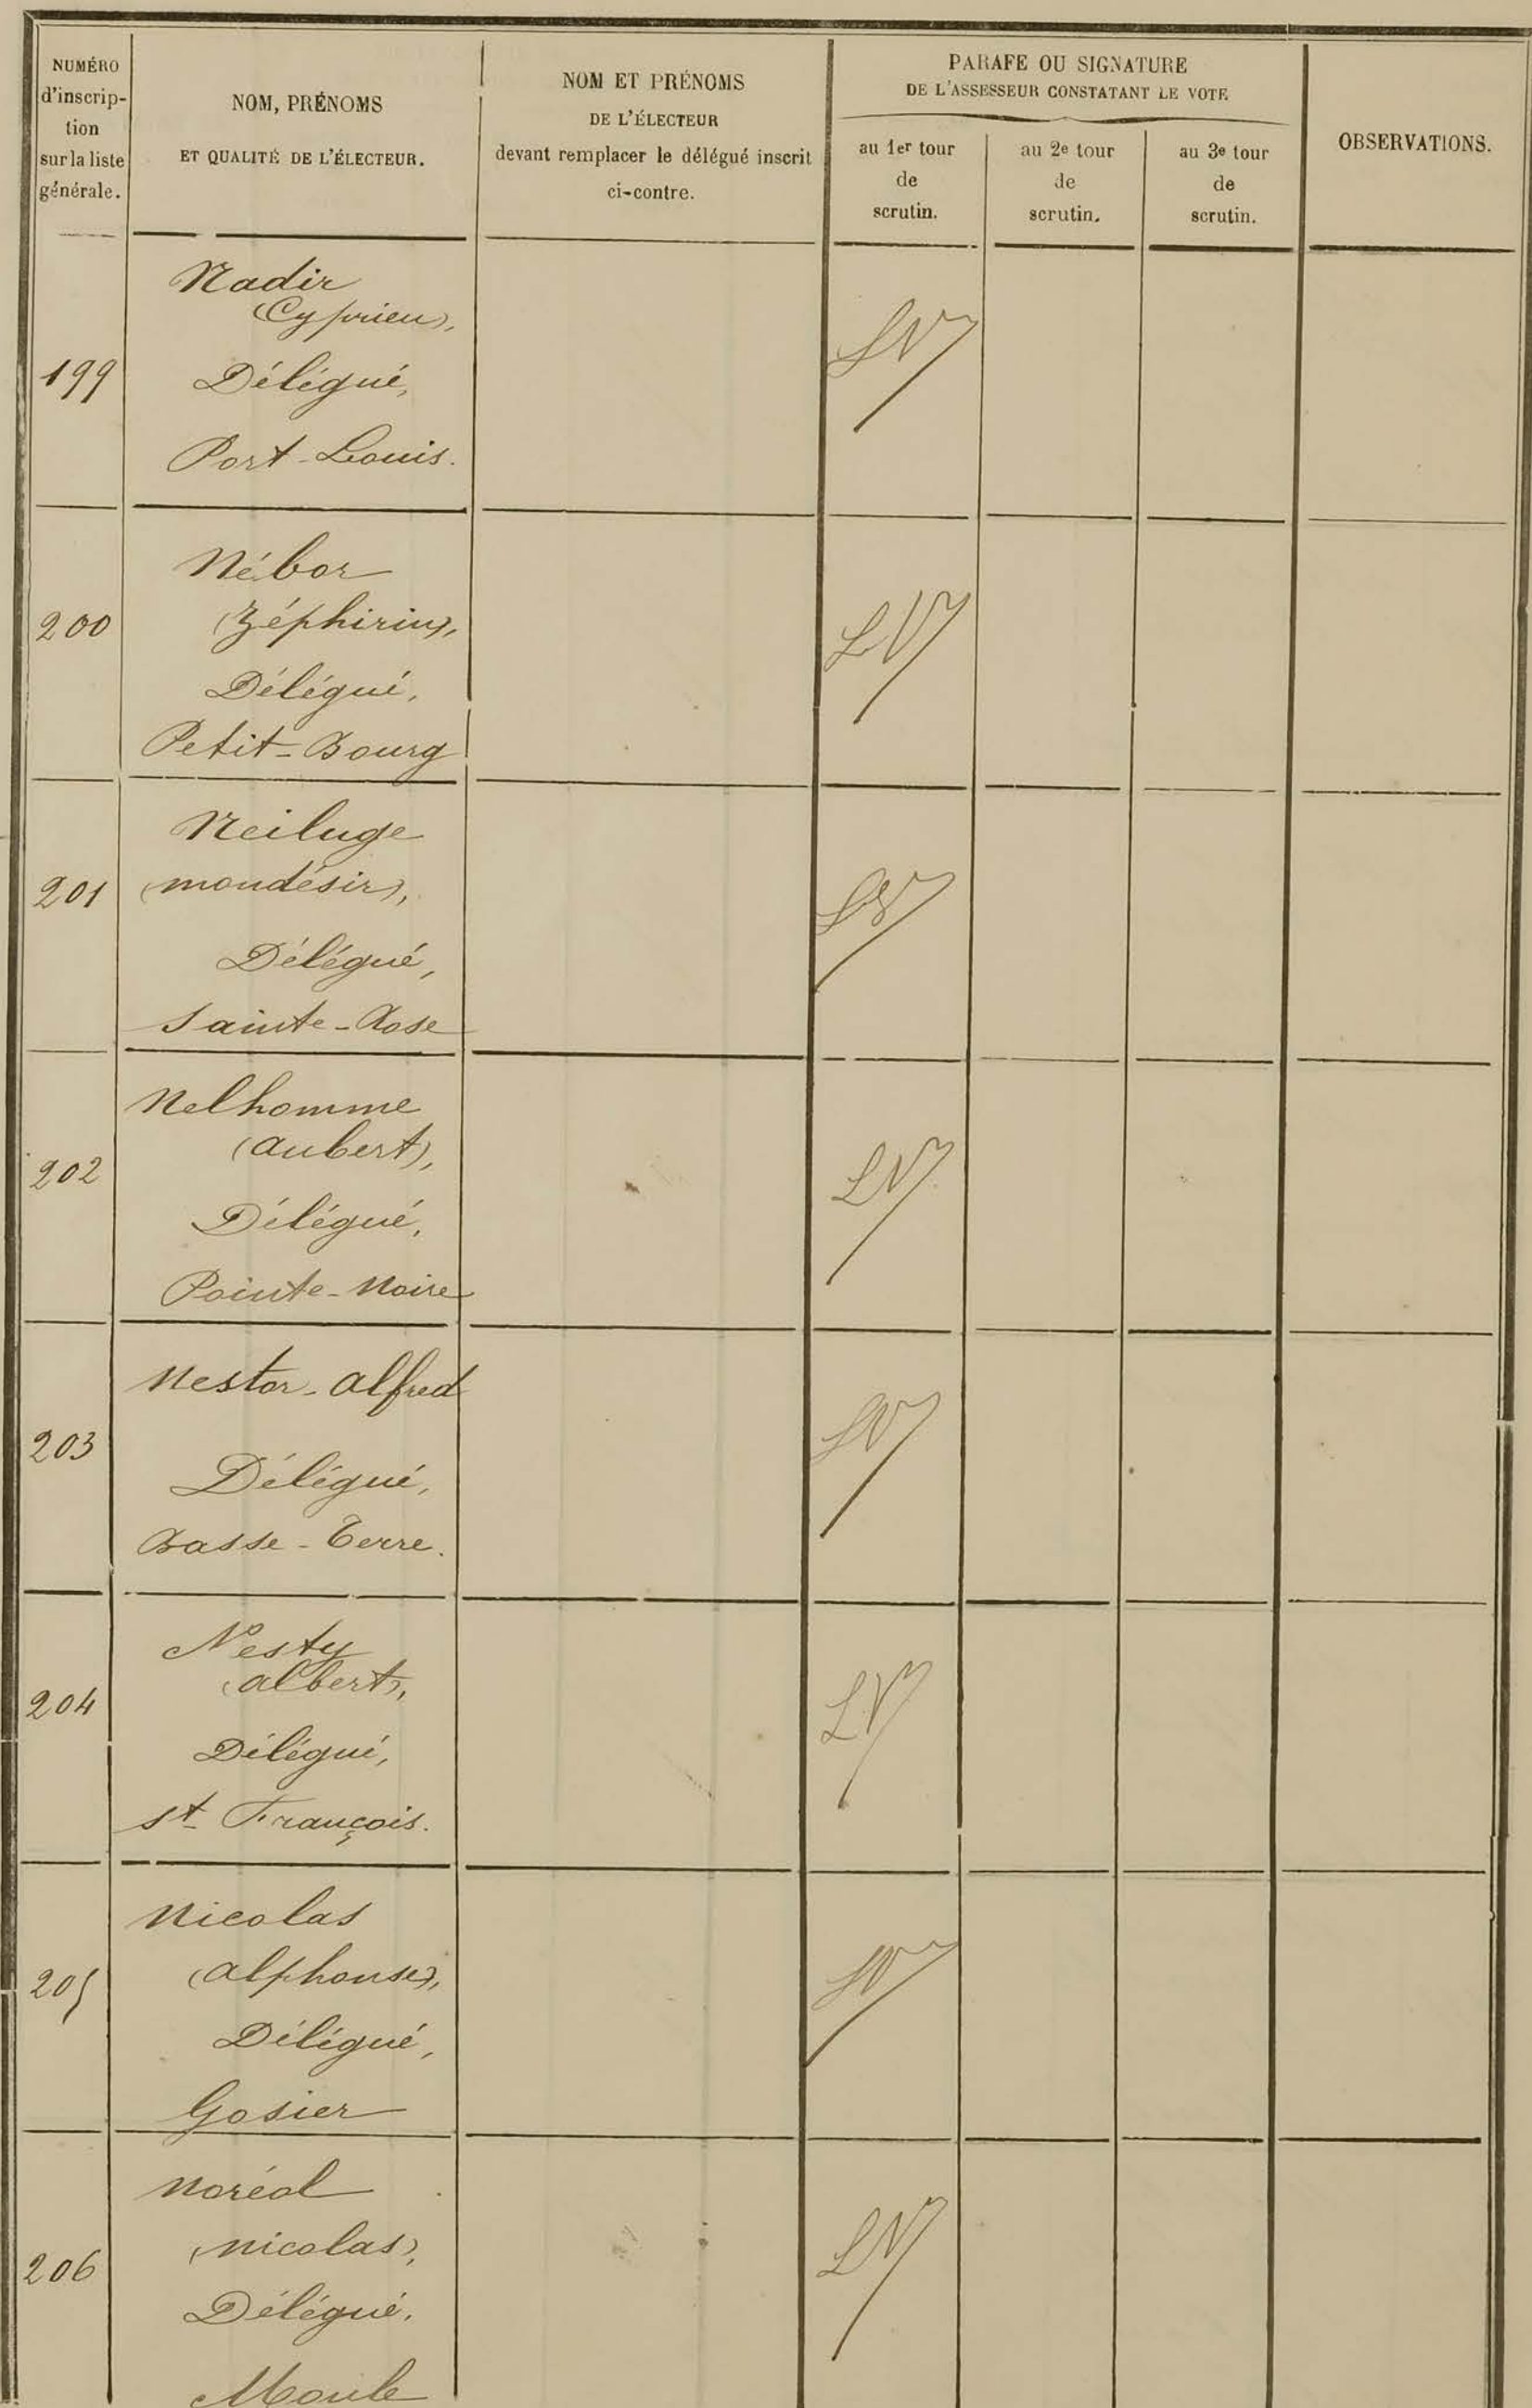 NUMÉRO
d'inscrip-
tion
sur la liste
générale.
NOM, PRÉNOMS
ET QUALITÉ DE L'ÉLECTEUR.
NOM ET PRÉNOMS
DE L'ÉLECTEUR
devant remplacer le délégué inscrit
ci-contre.
PARAFE OU SIGNATURE
DE L'ASSESSEUR CONSTATANT LE VOTE
au 1er tour
de
scrutin.
au 2e tour
de
scrutin.
au 3e tour
de
scrutin.
OBSERVATIONS.
199
Nadir
(Cyprien),
Délégué,
Port-Louis.
LV
200
Nébor
(Zéphirin),
Délégué,
Petit-Bourg
LV
201
Neiluge
(mondésir),
Délégué,
Sainte-Rose
LV
202
Nelhomme
(Aubert),
Délégué,
Pointe-Noire
LV
203
Nestor-Alfred
Délégué,
Basse-Terre.
LV
204
Nesty
(Albert),
Délégué,
St François.
LV
205
Nicolas
(Alphonse),
Délégué,
Gosier
LV
206
Noréal
(Nicolas),
Délégué,
Moule
LV